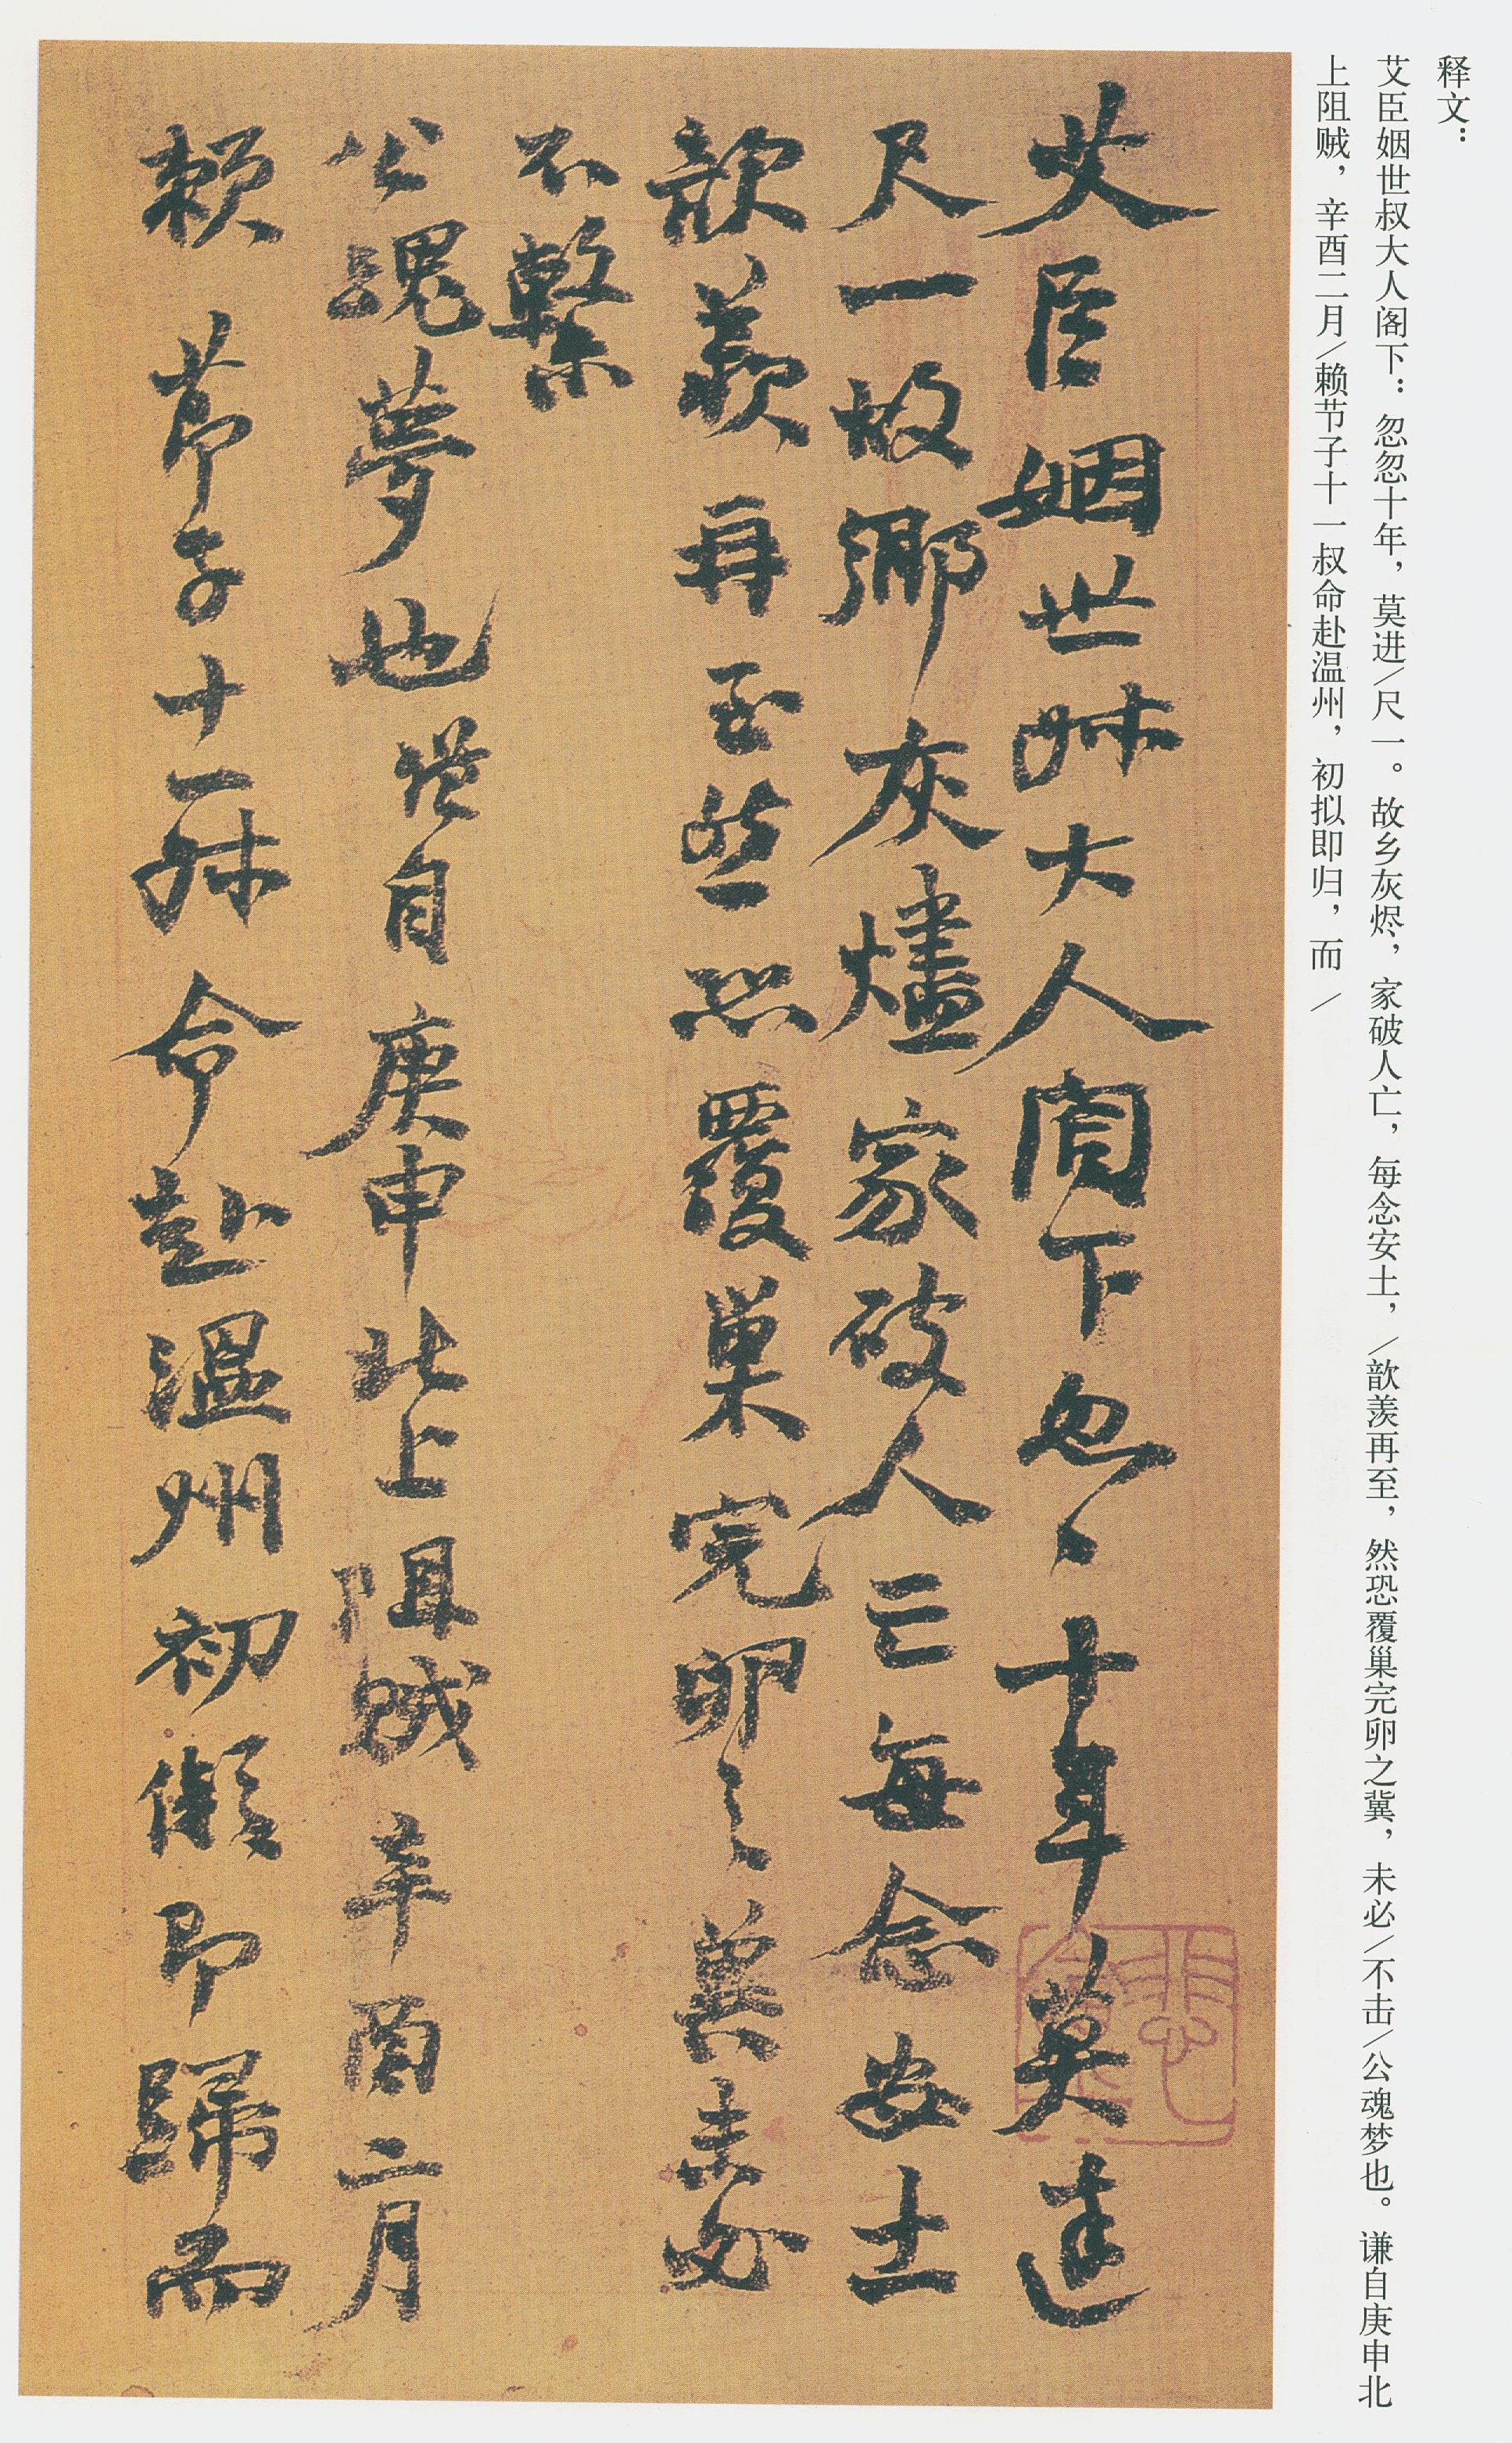 释文：
艾臣姻世叔大人阁下：忽忽十年，莫进/尺一。故乡灰烬，家破人亡，每念安土，/歆羡再至，然恐覆巢完卵之冀，未必/不击/公魂梦也。谦自庚申北
上阻贼，辛酉二月/赖节子十一叔命赴温州，初拟即归，而 /
艾臣姻世叔大人閣下忽〻十年莫達
尺一故鄉灰燼家破人亡每念安土
歆羨再至然恐覆巢完卵之冀未必
不繫
公魂夢也謙自庚申北上阻賊辛酉二月
賴 節子十一叔命赴溫州初儗即歸而